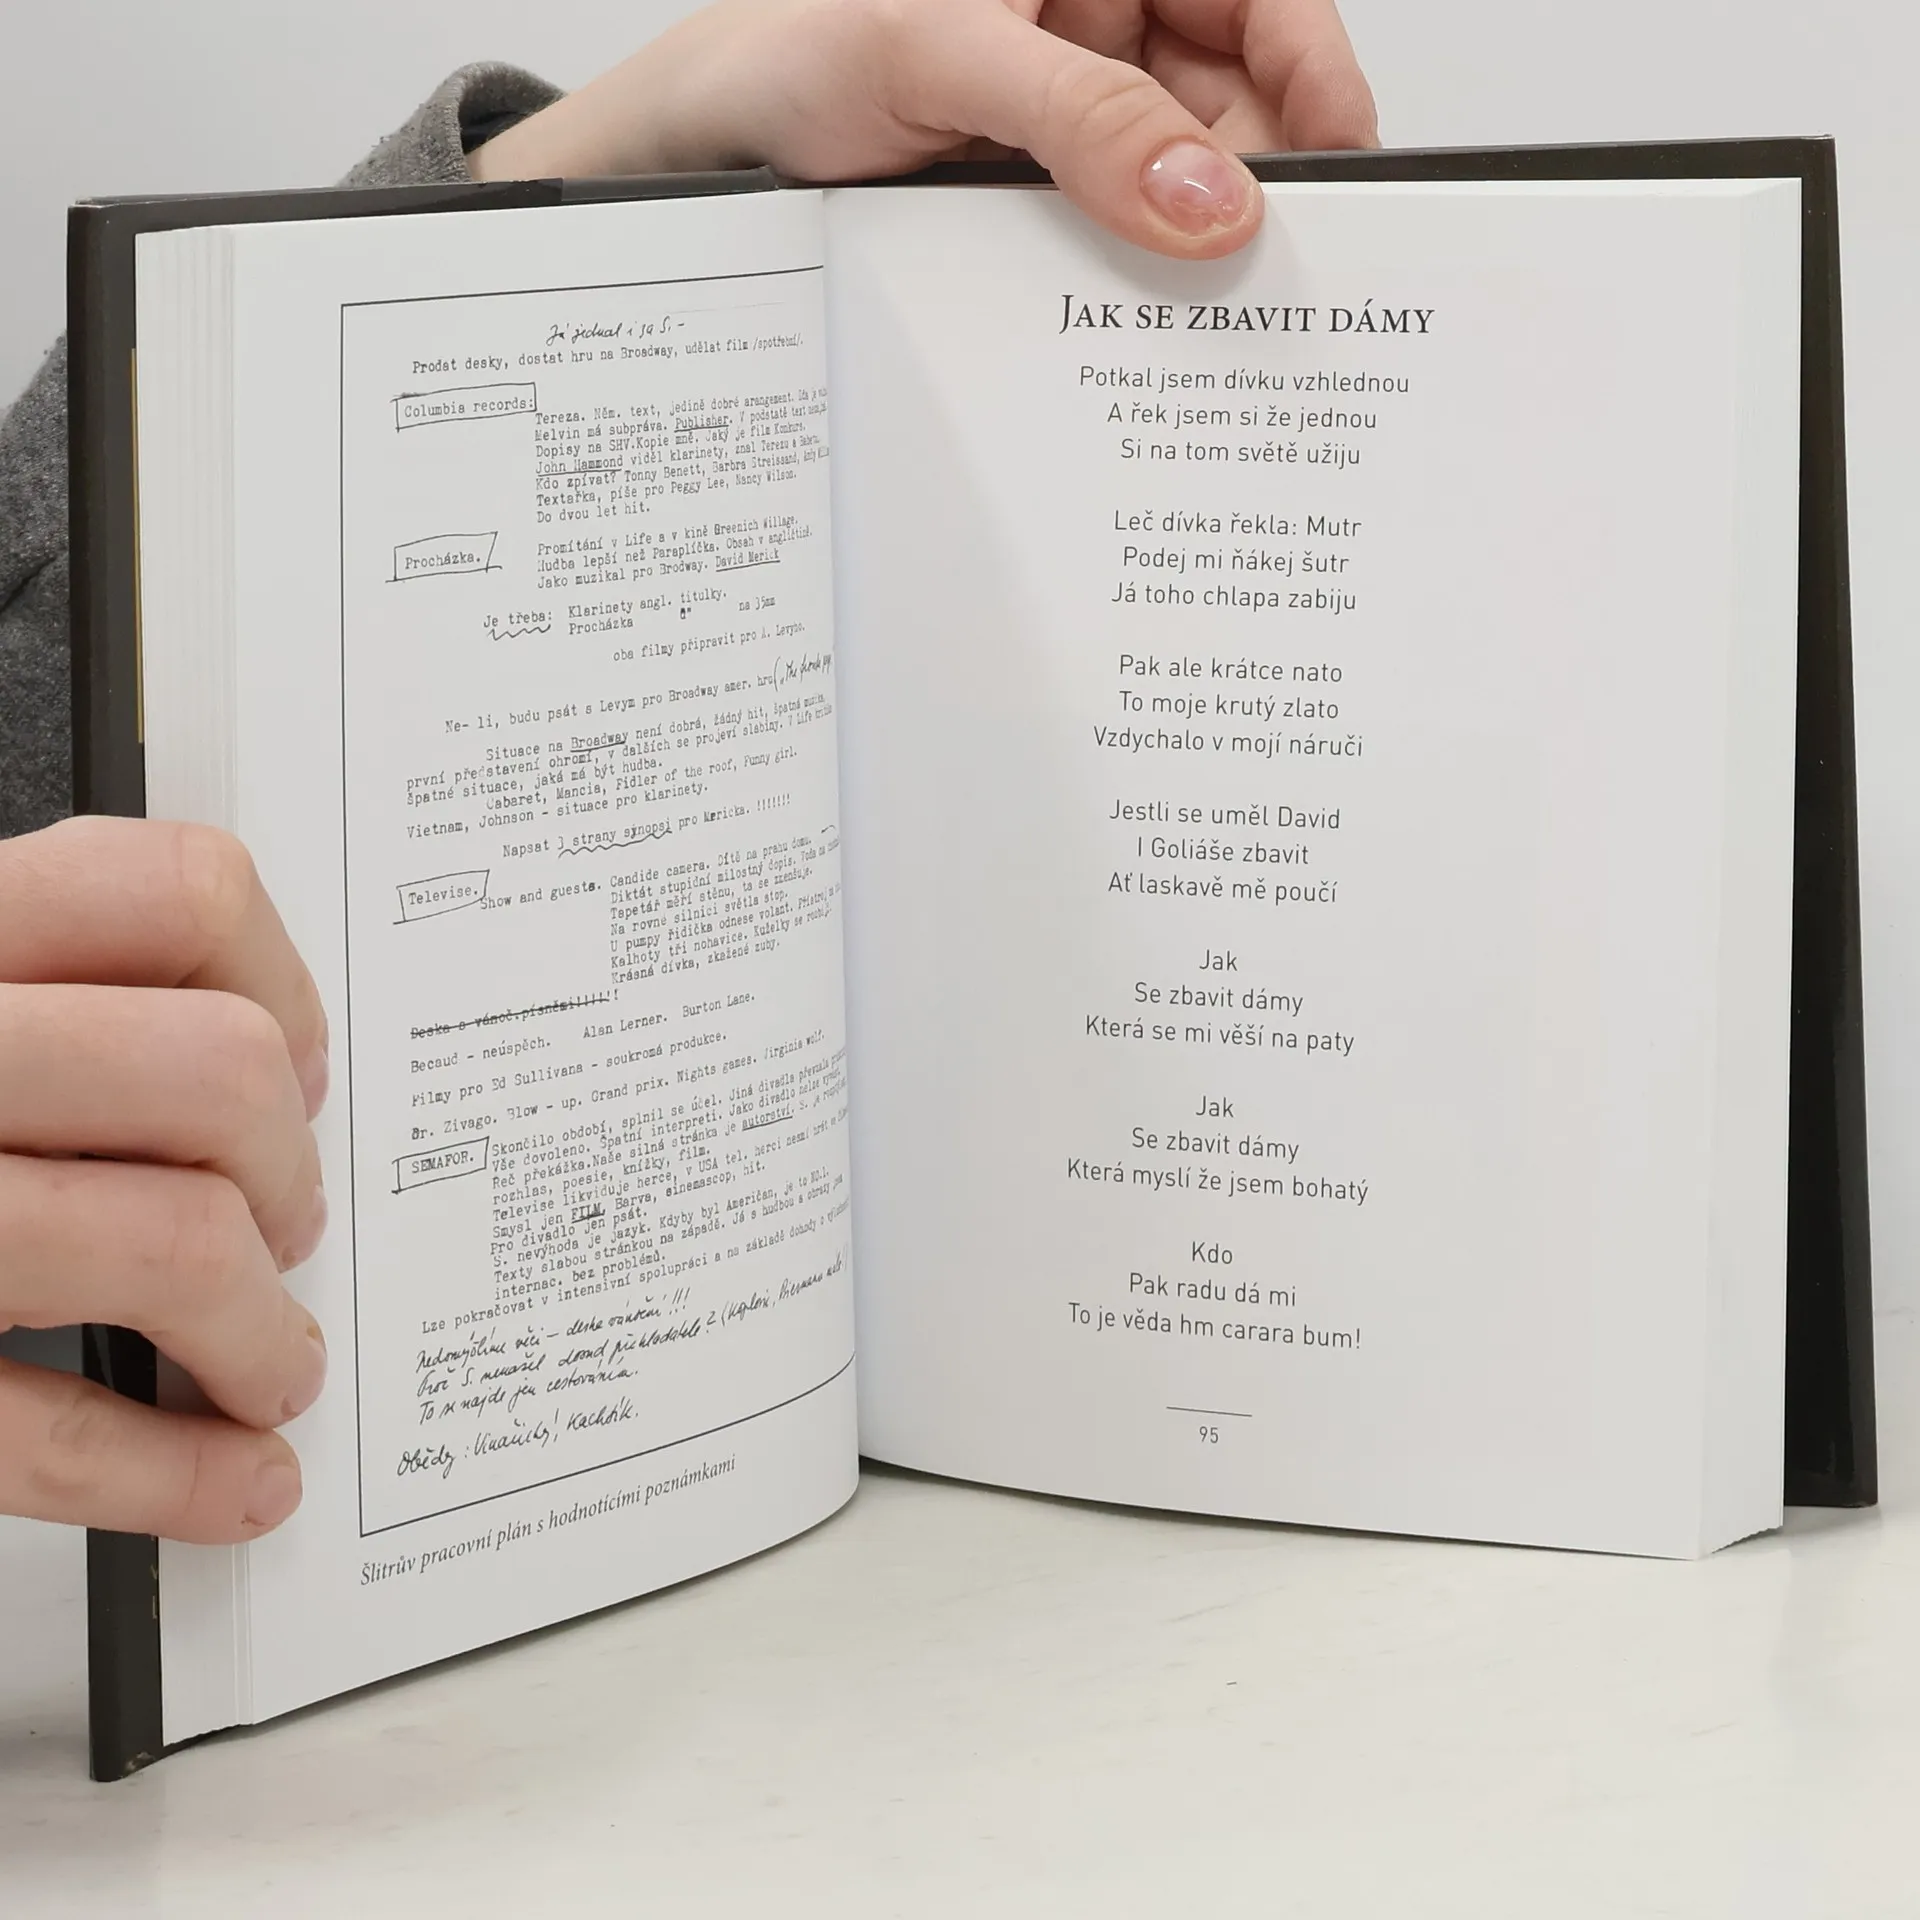 Já jednal i za S. –
Prodat desky, dostat hru na Broadway, udělat film /spotřební/.
Columbia records:
Tereza. Něm. text, jedině dobré arangement. Ida je
Melvin má subpráva. Publisher. V podstatě text
Dopisy na SHV.Kopie mně. Jaký je film Konkurs.
John Hammond viděl klarinety, znal Terezu a Babetu.
Kdo zpívat? Tonny Benett, Barbra Streissand, Andy
Textařka, píše pro Peggy Lee, Nancy Wilson.
Do dvou let hit.
Procházka.
Promítání v Life a v kině Greenich Village.
Hudba lepší než Paraplíčka. Obsah v angličtině.
Jako muzikal pro Brodway. David Merick
Je třeba: Klarinety angl. titulky.
Procházka " na 35mm
oba filmy připravit pro A. Levyho.
Ne- li, budu psát s Levym pro Broadway amer. hru („The
Situace na Broadway není dobrá, žádný hit, špatná muzika,
první představení ohromí, v dalších se projeví slabiny. V Life kritika
špatné situace, jaká má být hudba.
Cabaret, Mancia, Fidler of the roof, Funny girl.
Vietnam, Johnson – situace pro klarinety.
Napsat 3 strany synopsi pro Mericka. !!!!!!!
Televise.
Show and guests. Candide camera. Dítě na prahu domu.
Diktát stupidní milostný dopis. Voda na
Tapetář měří stěnu, ta se zmenšuje.
Na rovné silnici světla stop.
U pumpy řidička odnese volant. Přístroj za
Kalhoty tři nohavice. Kuželky se
Krásná dívka, zkažené zuby.
Deska s vánoč.písněmi!!!!!!
Becaud – neúspěch. Alan Lerner. Burton Lane.
Filmy pro Ed Sullivana – soukromá produkce.
Dr. Zivago. Blow – up. Grand prix. Nights games. Virginia wolf.
SEMAFOR.
Skončilo období, splnil se účel. Jiná divadla převzala
Vše dovoleno. Špatní interpreti. Jako divadlo nelze
Řeč překážka.Naše silná stránka je autorství. S. je
rozhlas, poesie, knížky, film.
Televise likviduje herce, v USA tel. herci nesmí hrát ve
Smysl jen FILM. Barva, sinemascop, hit.
Pro divadlo jen psát.
S. nevýhoda je jazyk. Kdyby byl Američan, je to NO.1.
Texty slabou stránkou na západě. Já s hudbou a obrazy jsem
internac. bez problémů.
Lze pokračovat v intensivní spolupráci a na základě dohody o
Nedomýšlíme věci – deska vánoční!!!
Proč S. nenašel dosud překladatele? (Kaplan,
To se najde jen cestováním.
Obědy: Vinařický, Kachtík.
Šlitrův pracovní plán s hodnotícími poznámkami
Jak se zbavit dámy
Potkal jsem dívku vzhlednou
A řek jsem si že jednou
Si na tom světě užiju
Leč dívka řekla: Mutr
Podej mi ňákej šutr
Já toho chlapa zabiju
Pak ale krátce nato
To moje krutý zlato
Vzdychalo v mojí náruči
Jestli se uměl David
I Goliáše zbavit
Ať laskavě mě poučí
Jak
Se zbavit dámy
Která se mi věší na paty
Jak
Se zbavit dámy
Která myslí že jsem bohatý
Kdo
Pak radu dá mi
To je věda hm carara bum!
95